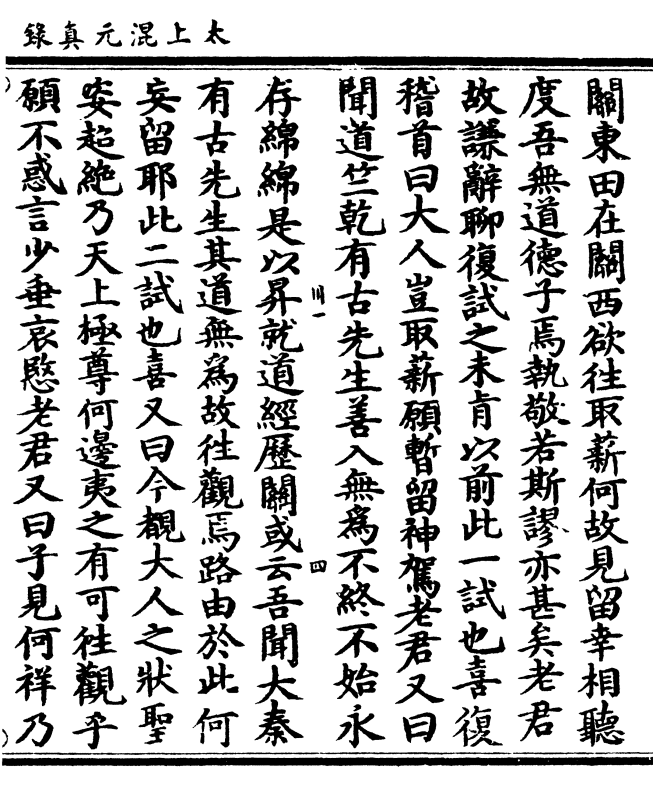 太上混元真録
關東田在關西欲往取薪何故見留幸相聽
度吾無道德子焉執敬若斯謬亦甚矣老君
故謙辭聊復試之未肯以前此一試也喜復
稽首曰大人豈取薪願暫留神駕老君又曰
聞道竺乾有古先生善入無爲不終不始永
川一 四
存綿綿是以昇就道經歷關或云吾聞大秦
有古先生其道無爲故往觀焉路由於此何
妄留耶此二試也喜又曰今覩大人之狀聖
姿超絶乃天上極尊何邊夷之有可往觀乎
願不惑言少垂哀愍老君又曰子見何祥乃